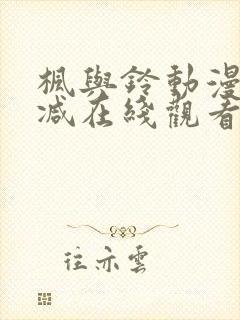 楓與鈴動漫
减在綫觀看
往亦雲